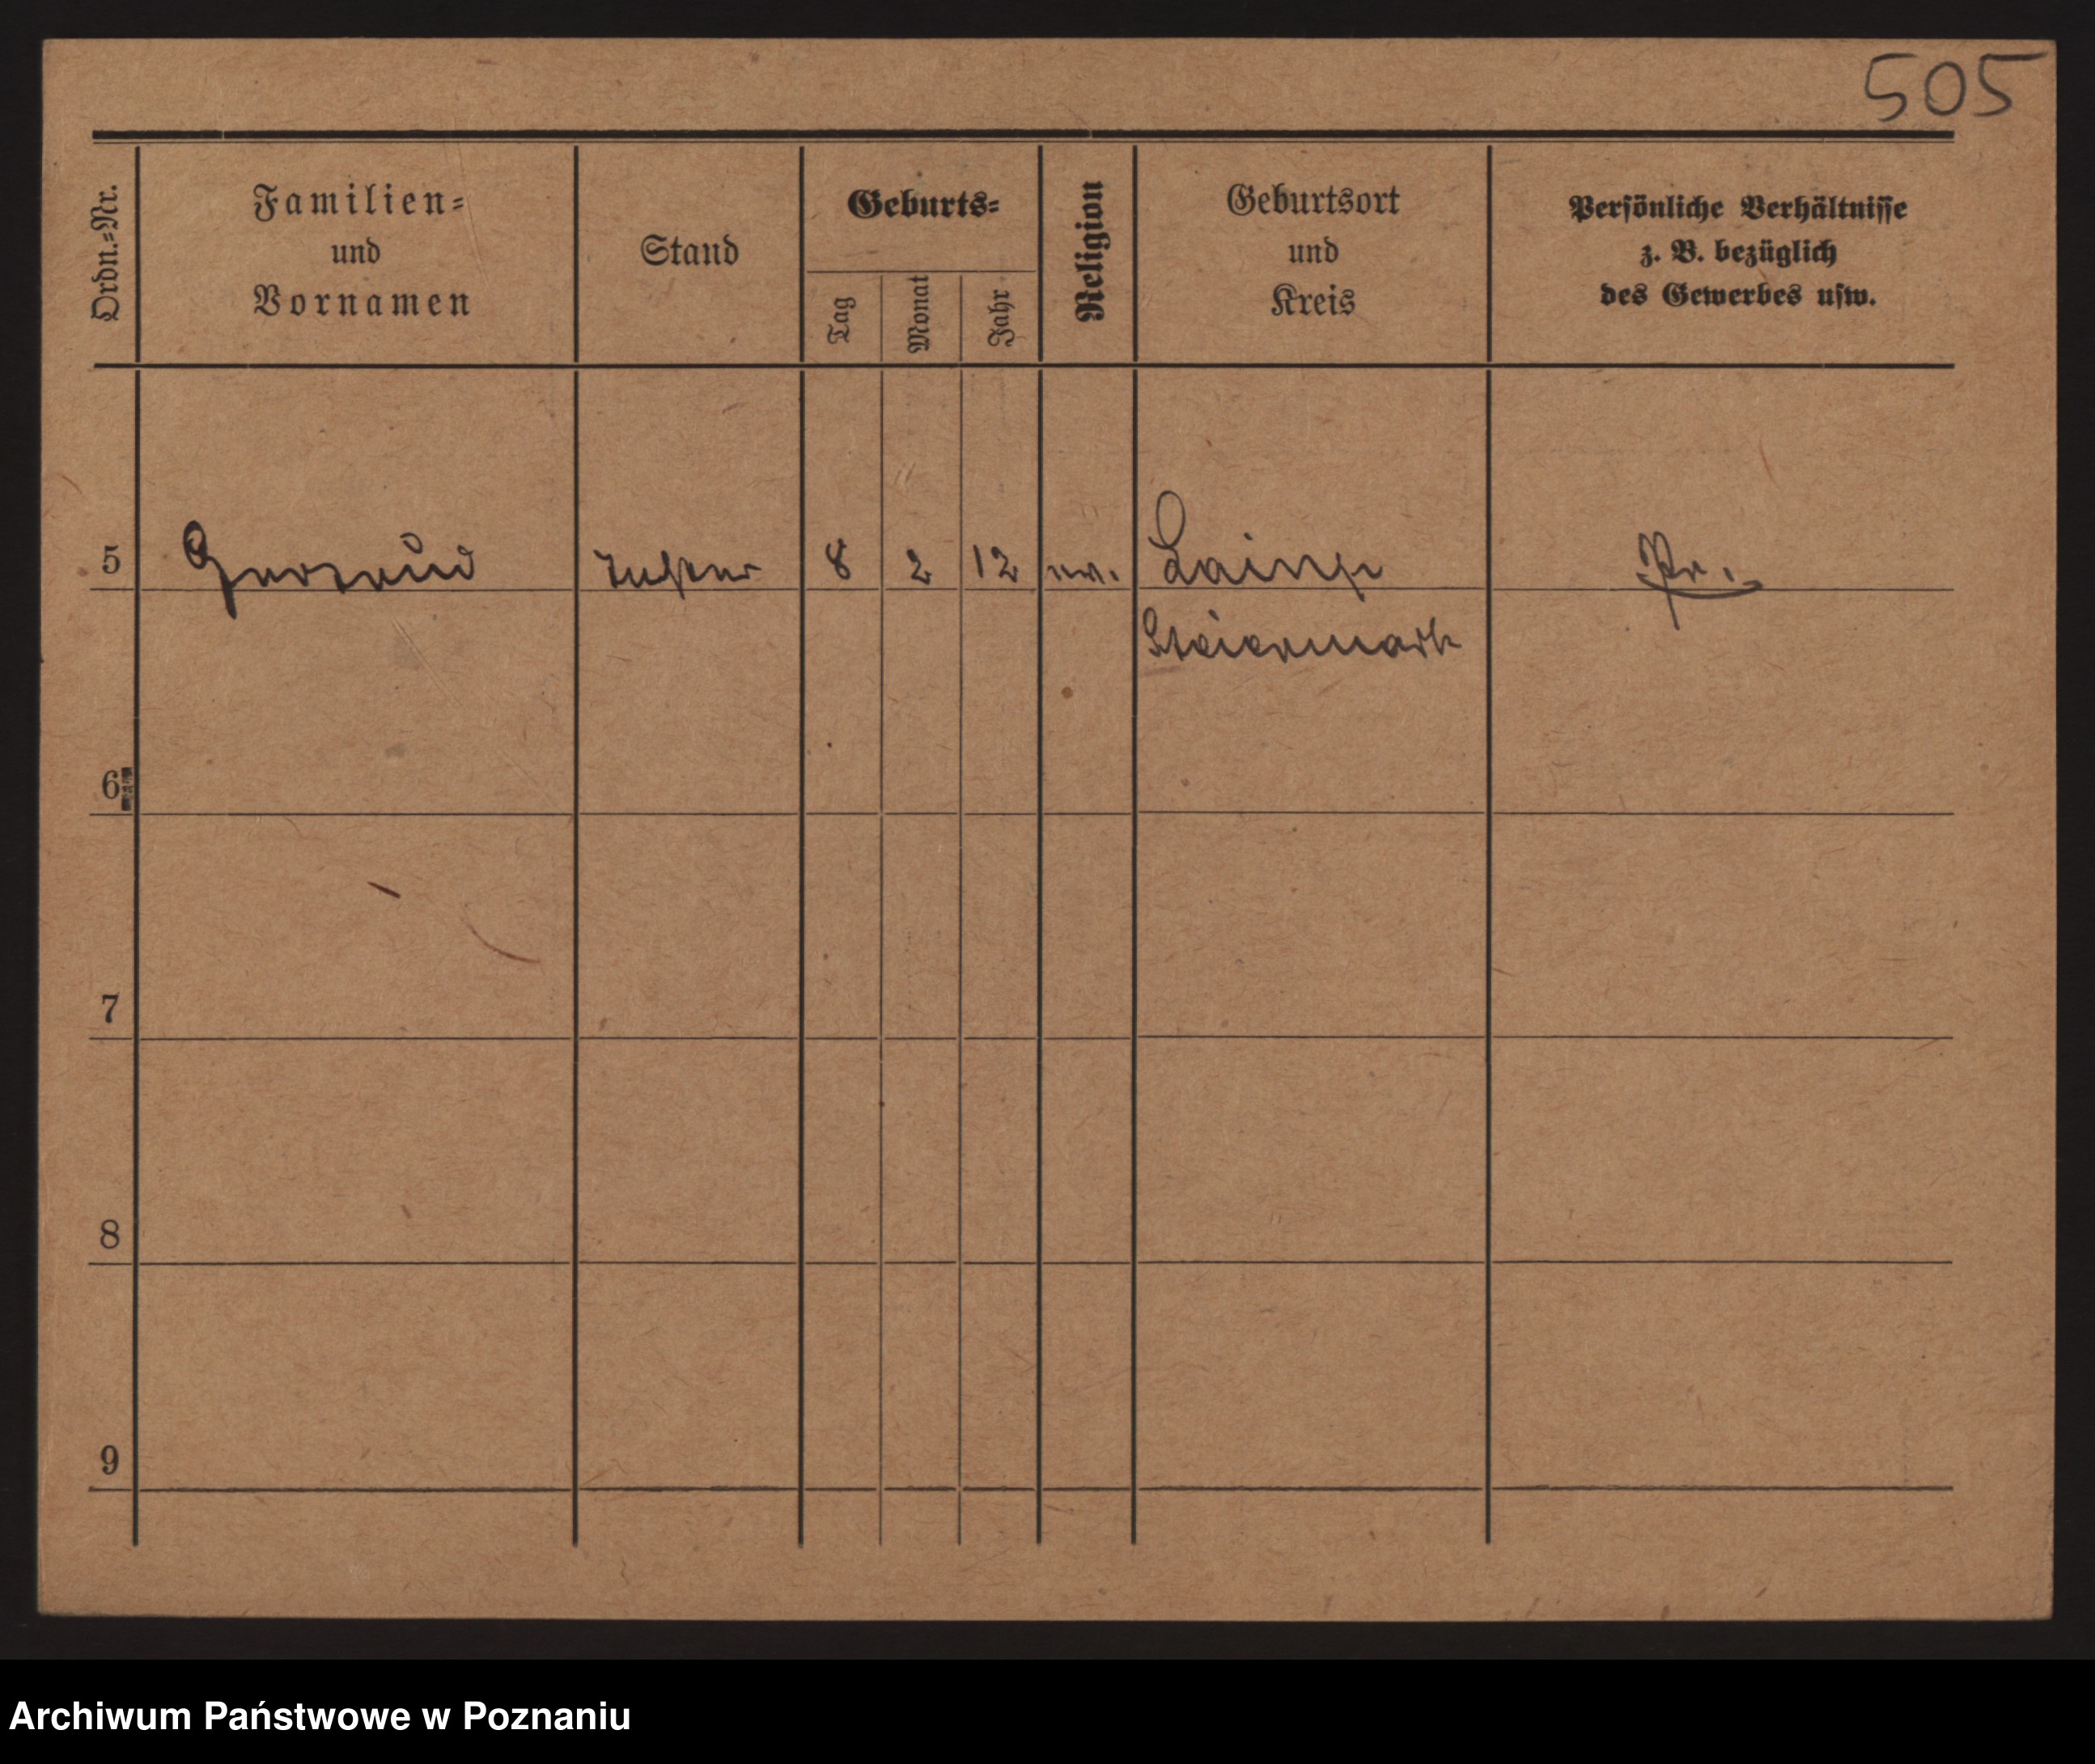 505
Ordn.-Nr.
Familien-
und
Vornamen
Stand
Geburts-
Tag
Monat
Jahr
Religion
Geburtsort
und
Kreis
Persönliche Verhältnisse
z. B. bezüglich
des Gewerbes usw.
5 Gertraud Tochter 8 2 12 ev. Pr.
Steiermark
6
7
8
9
Archiwum Państwowe w Poznaniu